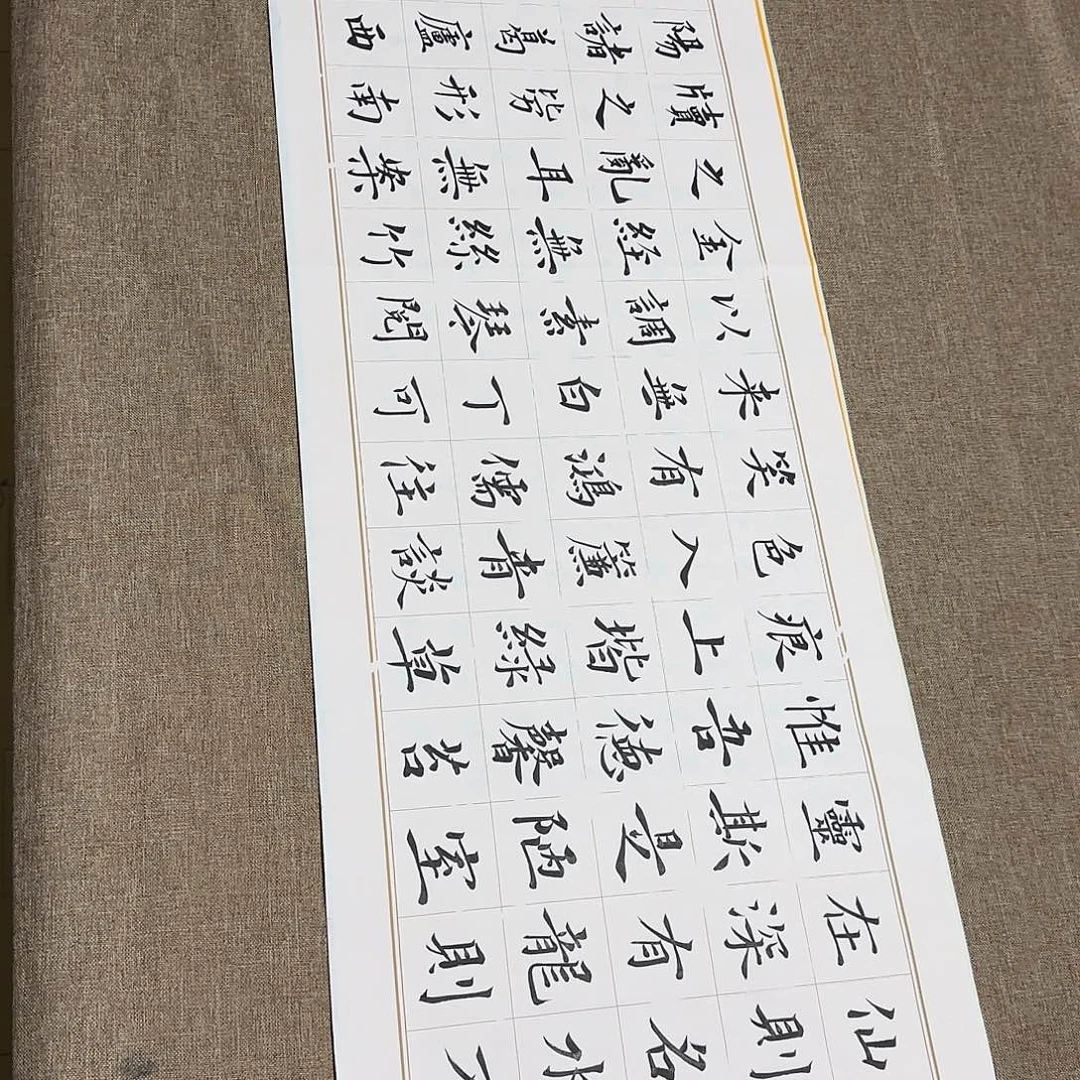 仙則名水不
在深有龍則
靈斯是陋室
惟吾德馨苔
痕上堦綠草
色入簾青談
笑有鴻儒往
来無白丁可
以調素琴閱
金經無絲竹
之亂耳無案
牘之勞形南
陽諸葛廬西